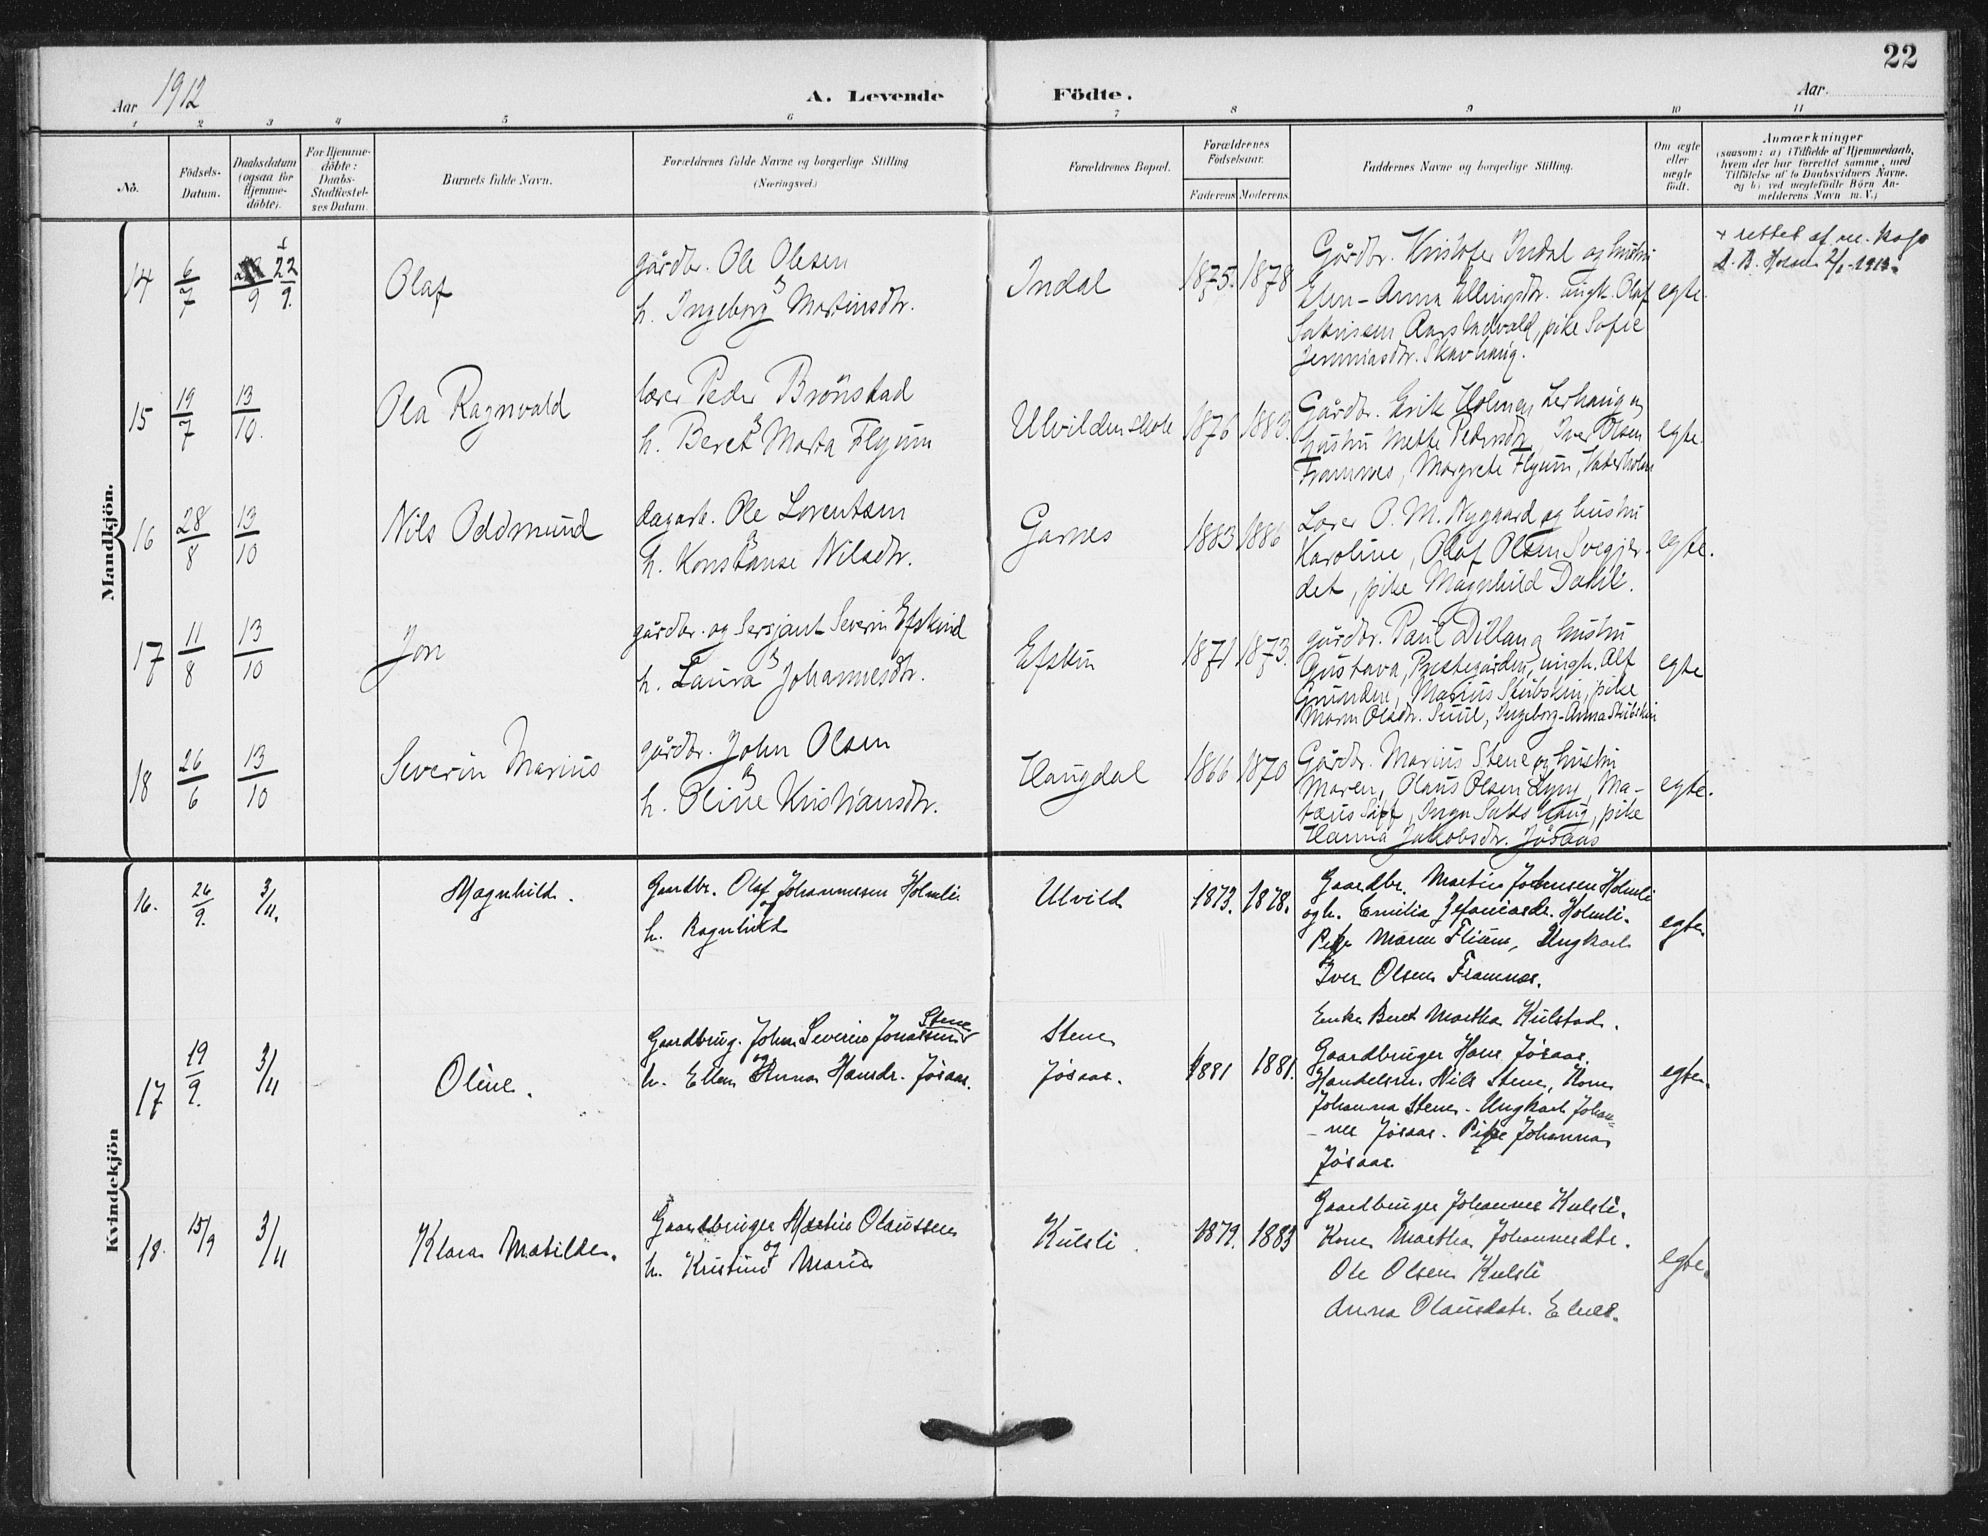 22
Aar 1912
A. Levende Födte.
Aar.
1 2 3 4 5 6 7 8 9 10 11
No.
Födsels-Datum.
Daabsdatum (ogsaa for Hjemme-döbte).
For Hjemme-döbte: Daabs-Stadfæstel-ses Datum.
Barnets fulde Navn.
Forældrenes fulde Navne og borgerlige Stilling
(Næringsvei.)
Forældrenes Bopæl.
Forældrenes Födselsaar.
Faderens Moderens
Faddernes Navne og borgerlige Stilling.
Om ægte eller uægte födt.
Anmærkninger
(saasom: a) i Tilfælde af Hjemmedaab,
hvem der har forrettet samme, med
Tilföielse af to Daabsvidners Navne.
og b) ved uægtefödte Börn An-
melderens Navn m. V.)
Mandkjön.
14 6/7 /9 + 22/9. Olaf
gårdbr. Ole Olesen
og
h. Ingeborg Martinsdtr.
Indal 1875. 1878
Gårdbr. Kristofer Indal og hustru
Elen-Anna Ellingsdtr. ungk. Olaf
pike Sofie
Jeremiasdtr. Skavhaug.
egte.
+ rettet af
2/1-1913.
15 19/7 13/10. Ola Ragnvald
lærer Peder Brönstad
og
h. Beret Marta Flyum
Ulvilden skole 1876 1883.
Gårdbr. Erik Holmen Lerhaug og
hustru Mette Pedersdtr, Iver Olsen
Framnes, Margrete Flyum,
egte.
16 28/8 13/10 Nils Oddmund
dagarb. Ole Lorentsen
og
h. Konstanse Nilsdtr.
Garnes 1883 1886
Lærer O. M. Nygaard og hustru
Karoline, Olaf Olsen Svegjer-
det, pike Magnhild Dahli.
egte.
17 11/8 13/10 Jon
gårdbr. og Sersjant Severin Efskind
og
h. Laura Johannesdtr.
Efskin 1871 1873.
gårdbr. Paul Dillan og hustru
Gustava, Prestegården, ungk. Alf
Grunden, Marius Stubskin, pike
Maren Olsdtr. Suul, Ingeborg-Anna Stubskin
egte
18 26/6 13/10 Severin Marius
gårdbr. John Olsen
og
h. Oline Kristiansdtr.
Haugdal 1866 1870
Gårdbr. Marius Stene og hustru
Maren, Olaus Olsen Lyng, Ma-
tæus, Haug, pike
Hanna Jakobsdtr. Jösaas
egte.
Kvindekjön
16. 26/9. 3/11. Magnhild.
Gaardbr. Olaf Johannesen Holmli
og
h. Ragnhild
Ulvild 1873. 1878.
Gaardbr. Martin Johnsen Holmli
og h. Emilia Jefaniasdr. Holmli.
Pike Maren Flium, Ungkarl
Iver Olsen Framnes.
egte.
17 19/9. 3/11 Oline.
Gaardbrug. Johan Severin Jonassen Stene
og
h. Ellen Anna Hansdr. Jøsaas.
Stene
Jøsaas.
1881 1881.
Enke Beret Martha Kulstad.
Gaardbruger Hans Jøsaas.
Handelsm. Nils Stene, Kone
Johanna Stene. Ungkarl Johan-
-nes Jøsaas. Pike Johanna
Jøsaas.
egte.
18. 15/9 3/11 Klara Matilde.
Gaardbruger Martin Olaussen
og
h. Kristine Marie
Kulsli. 1879. 1883
Gaardbruger Johannes Kulsli.
Kone Martha Johannesdtr.
Ole Olsen Kulsli
Anna Olausdatr. Elnes.
egte.